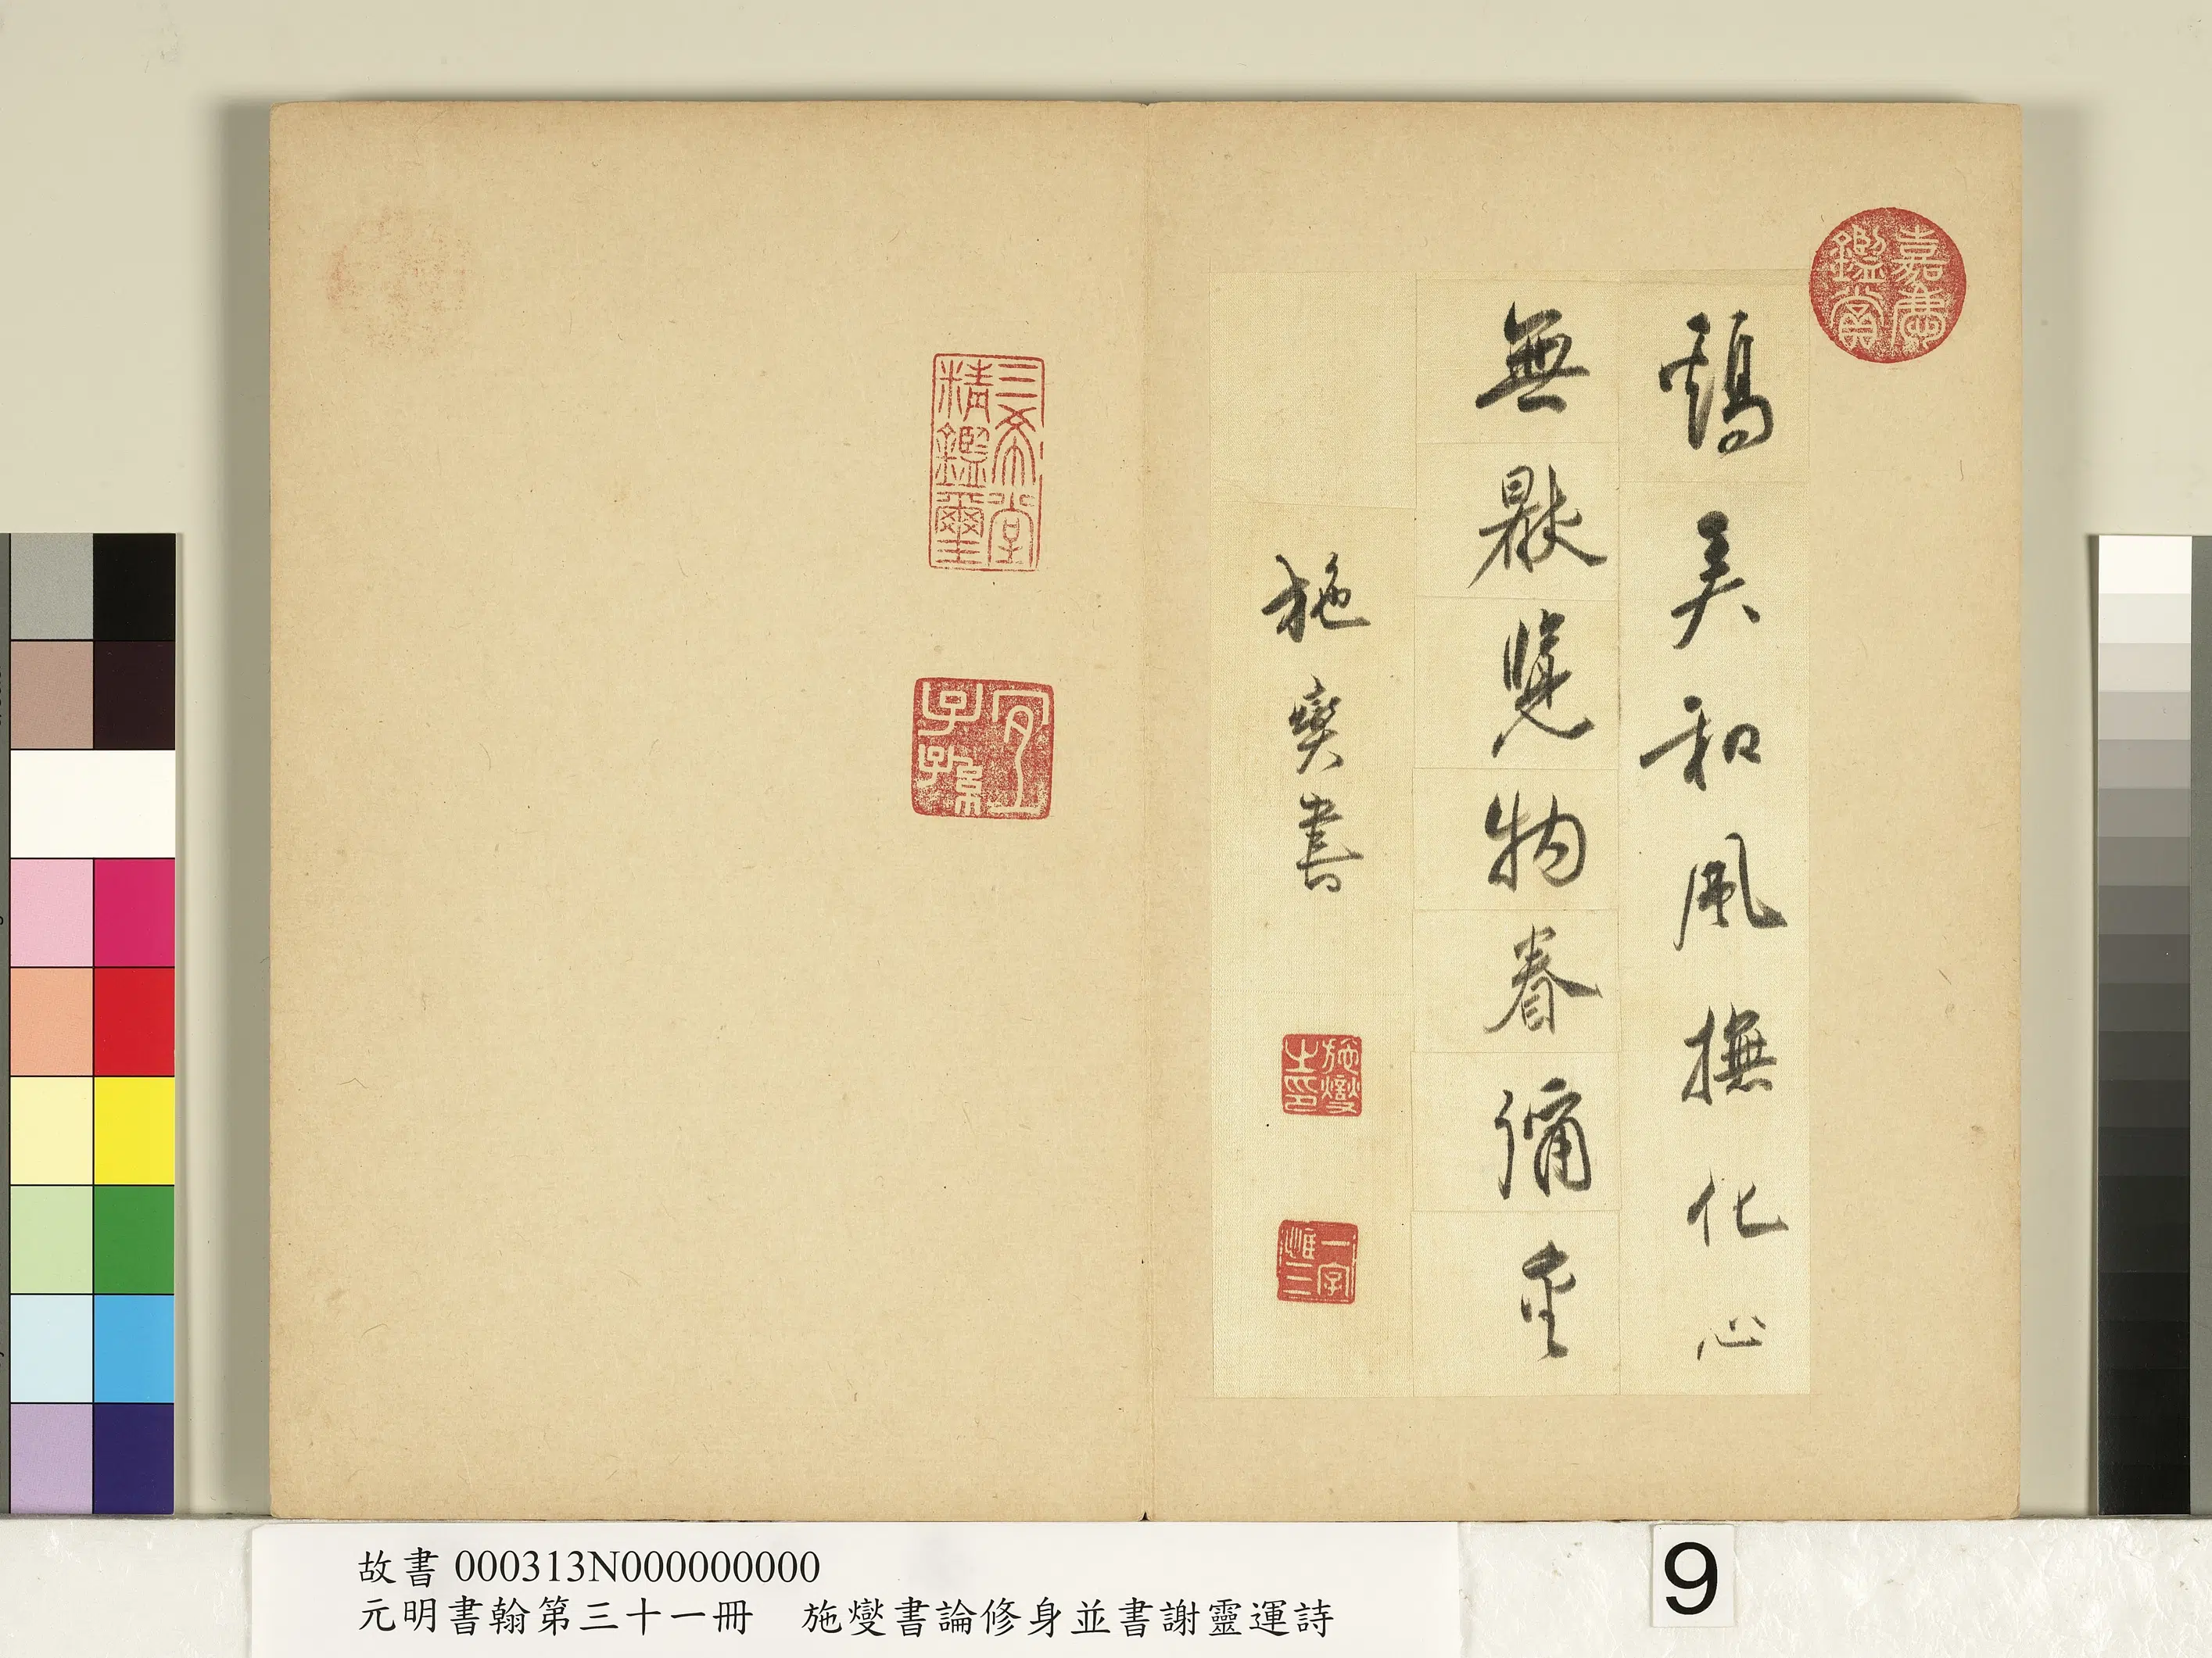 嘉慶鑑賞
鷄弄和風撫化心
無猒覽物眷彌重
施燮書
施燮之印
一字惟三
三希堂精鑑璽
宜子孫
故書 000313N000000000
元明書翰第三十一冊　施燮書論修身並書謝靈運詩
9